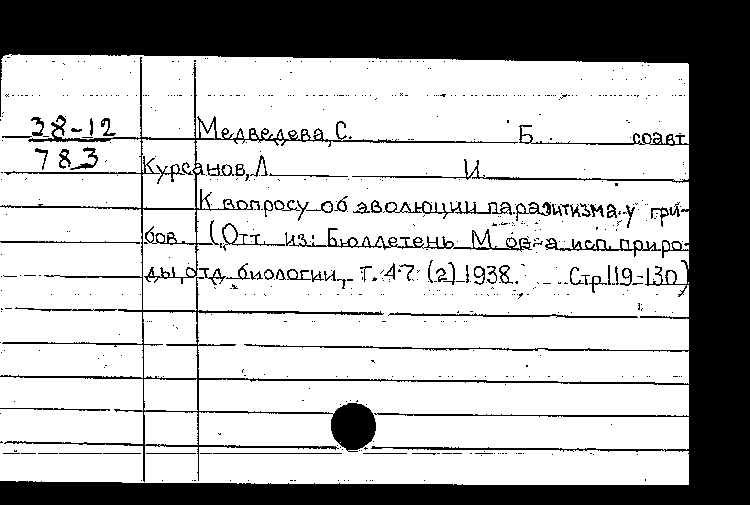 38-12
783
Медведева, С. Б. соавт.
Курсанов, Л. И.
К вопросу об эволюции паразитизма у гри-
бов. (Отт. из: Бюллетень М. ов-а исп. приро-
ды, отд. биологии, т. 47 (2) 1938. Стр 119-130)